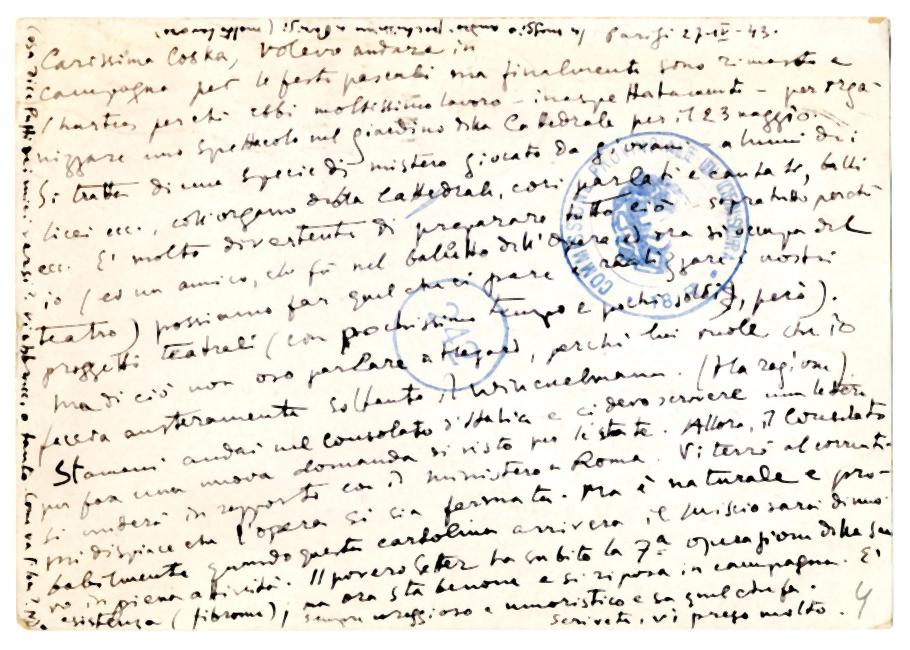 Parigi 27-IV-43.
Carissima Coska, Volevo andare in
campagna per le feste pascali ma finalmente sono rimasto a
perchè ebbi moltissimo lavoro - inaspettatamente - per orga-
nizzare uno spettacolo nel giardino della Cattedrale per il 23 maggio.
Si tratta di una specie di mistero giocato da giovani - alunni dei
licei ecc., coll'organo della Cattedrale, cori parlati e cantati, balli
ecc. E' molto divertente di preparare tutto ciò - sopratutto perchè
io (ed un amico, che fu nel balletto dell'Opera ed ora si occupa del
teatro) possiamo far quel che ci pare e realizzare i nostri
progetti teatrali (con pochissimo tempo e pochi soldi, però).
Ma di ciò non oso parlare a, perchè lui vuole che io
faccia austeramente soltanto il Winckelmann. (Ha ragione)
Stamani andai nel consolato d'Italia e ci devo scrivere una lettera
per fare una nuova domanda di visto per l'estate. Allora, il Consolato
si metterà in rapporto con il ministero a Roma. Vi terrò al corrente.
Mi dispiace che l'opera si sia fermata. Ma è naturale e pro-
babilmente quando questa cartolina arriverà il sarà di nuo-
vo in piena attività. Il povero ha subito la 7ª operazione della sua
esistenza (fibrome), ma ora sta benone e si riposa in campagna. E'
sempre coraggioso e umoristico e sa quel che fa.
Scrivete, vi prego molto. 4
Cosa dice dei miei versi
COMMISSIONE PROVINCIALE DI CENSURA